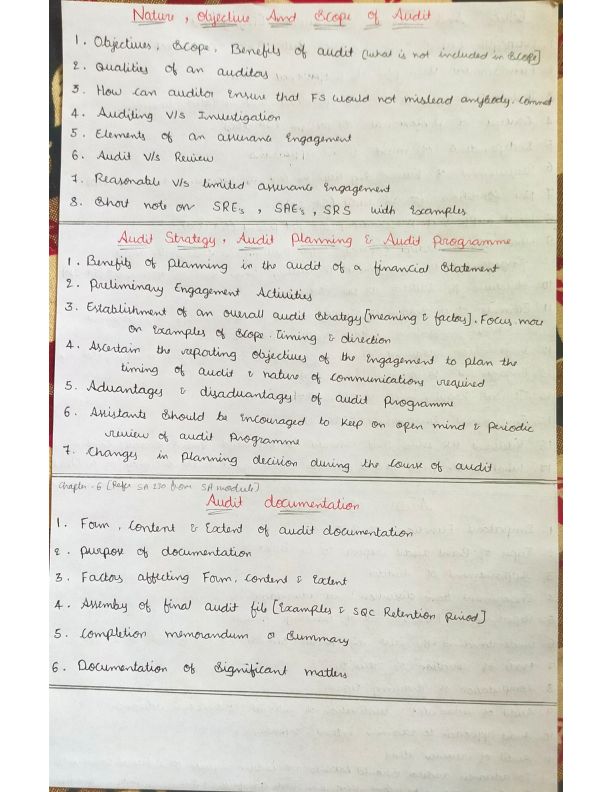 Nature, Objective And Scope of Audit
1. Objectives, Scope, Benefits of audit (what is not included in Scope]
2. Qualities of an auditors
3. How can auditor ensure that FS would not mislead anybody. Comment
4. Auditing V/s Investigation
5. Elements of an assurance Engagement
6. Audit V/s Review
7. Reasonable V/s limited assurance Engagement
8. Short note on SREs, SAEs, SRS with Examples
Audit Strategy, Audit Planning & Audit Programme
1. Benefits of planning in the audit of a financial Statement
2. Preliminary Engagement Activities
3. Establishment of an overall audit Strategy [meaning & factors]. Focus more
on Examples of Scope. Timing & direction
4. Ascertain the reporting objectives of the Engagement to plan the
timing of audit & nature of communications required
5. Advantages & disadvantages of audit programme
6. Assistants should be Encouraged to keep on open mind & periodic
review of audit Programme
7. Changes in Planning decision during the Course of audit
Chapter - 6 [Refer SA 230 from SA module)
Audit documentation
1. Form, Content & Extent of audit documentation
2. purpose of documentation
3. Factors affecting Form, Content & Extent
4. Assembly of final audit file [Examples & SQC Retention Period]
5. Completion memorandum or Summary
6. Documentation of Significant matters